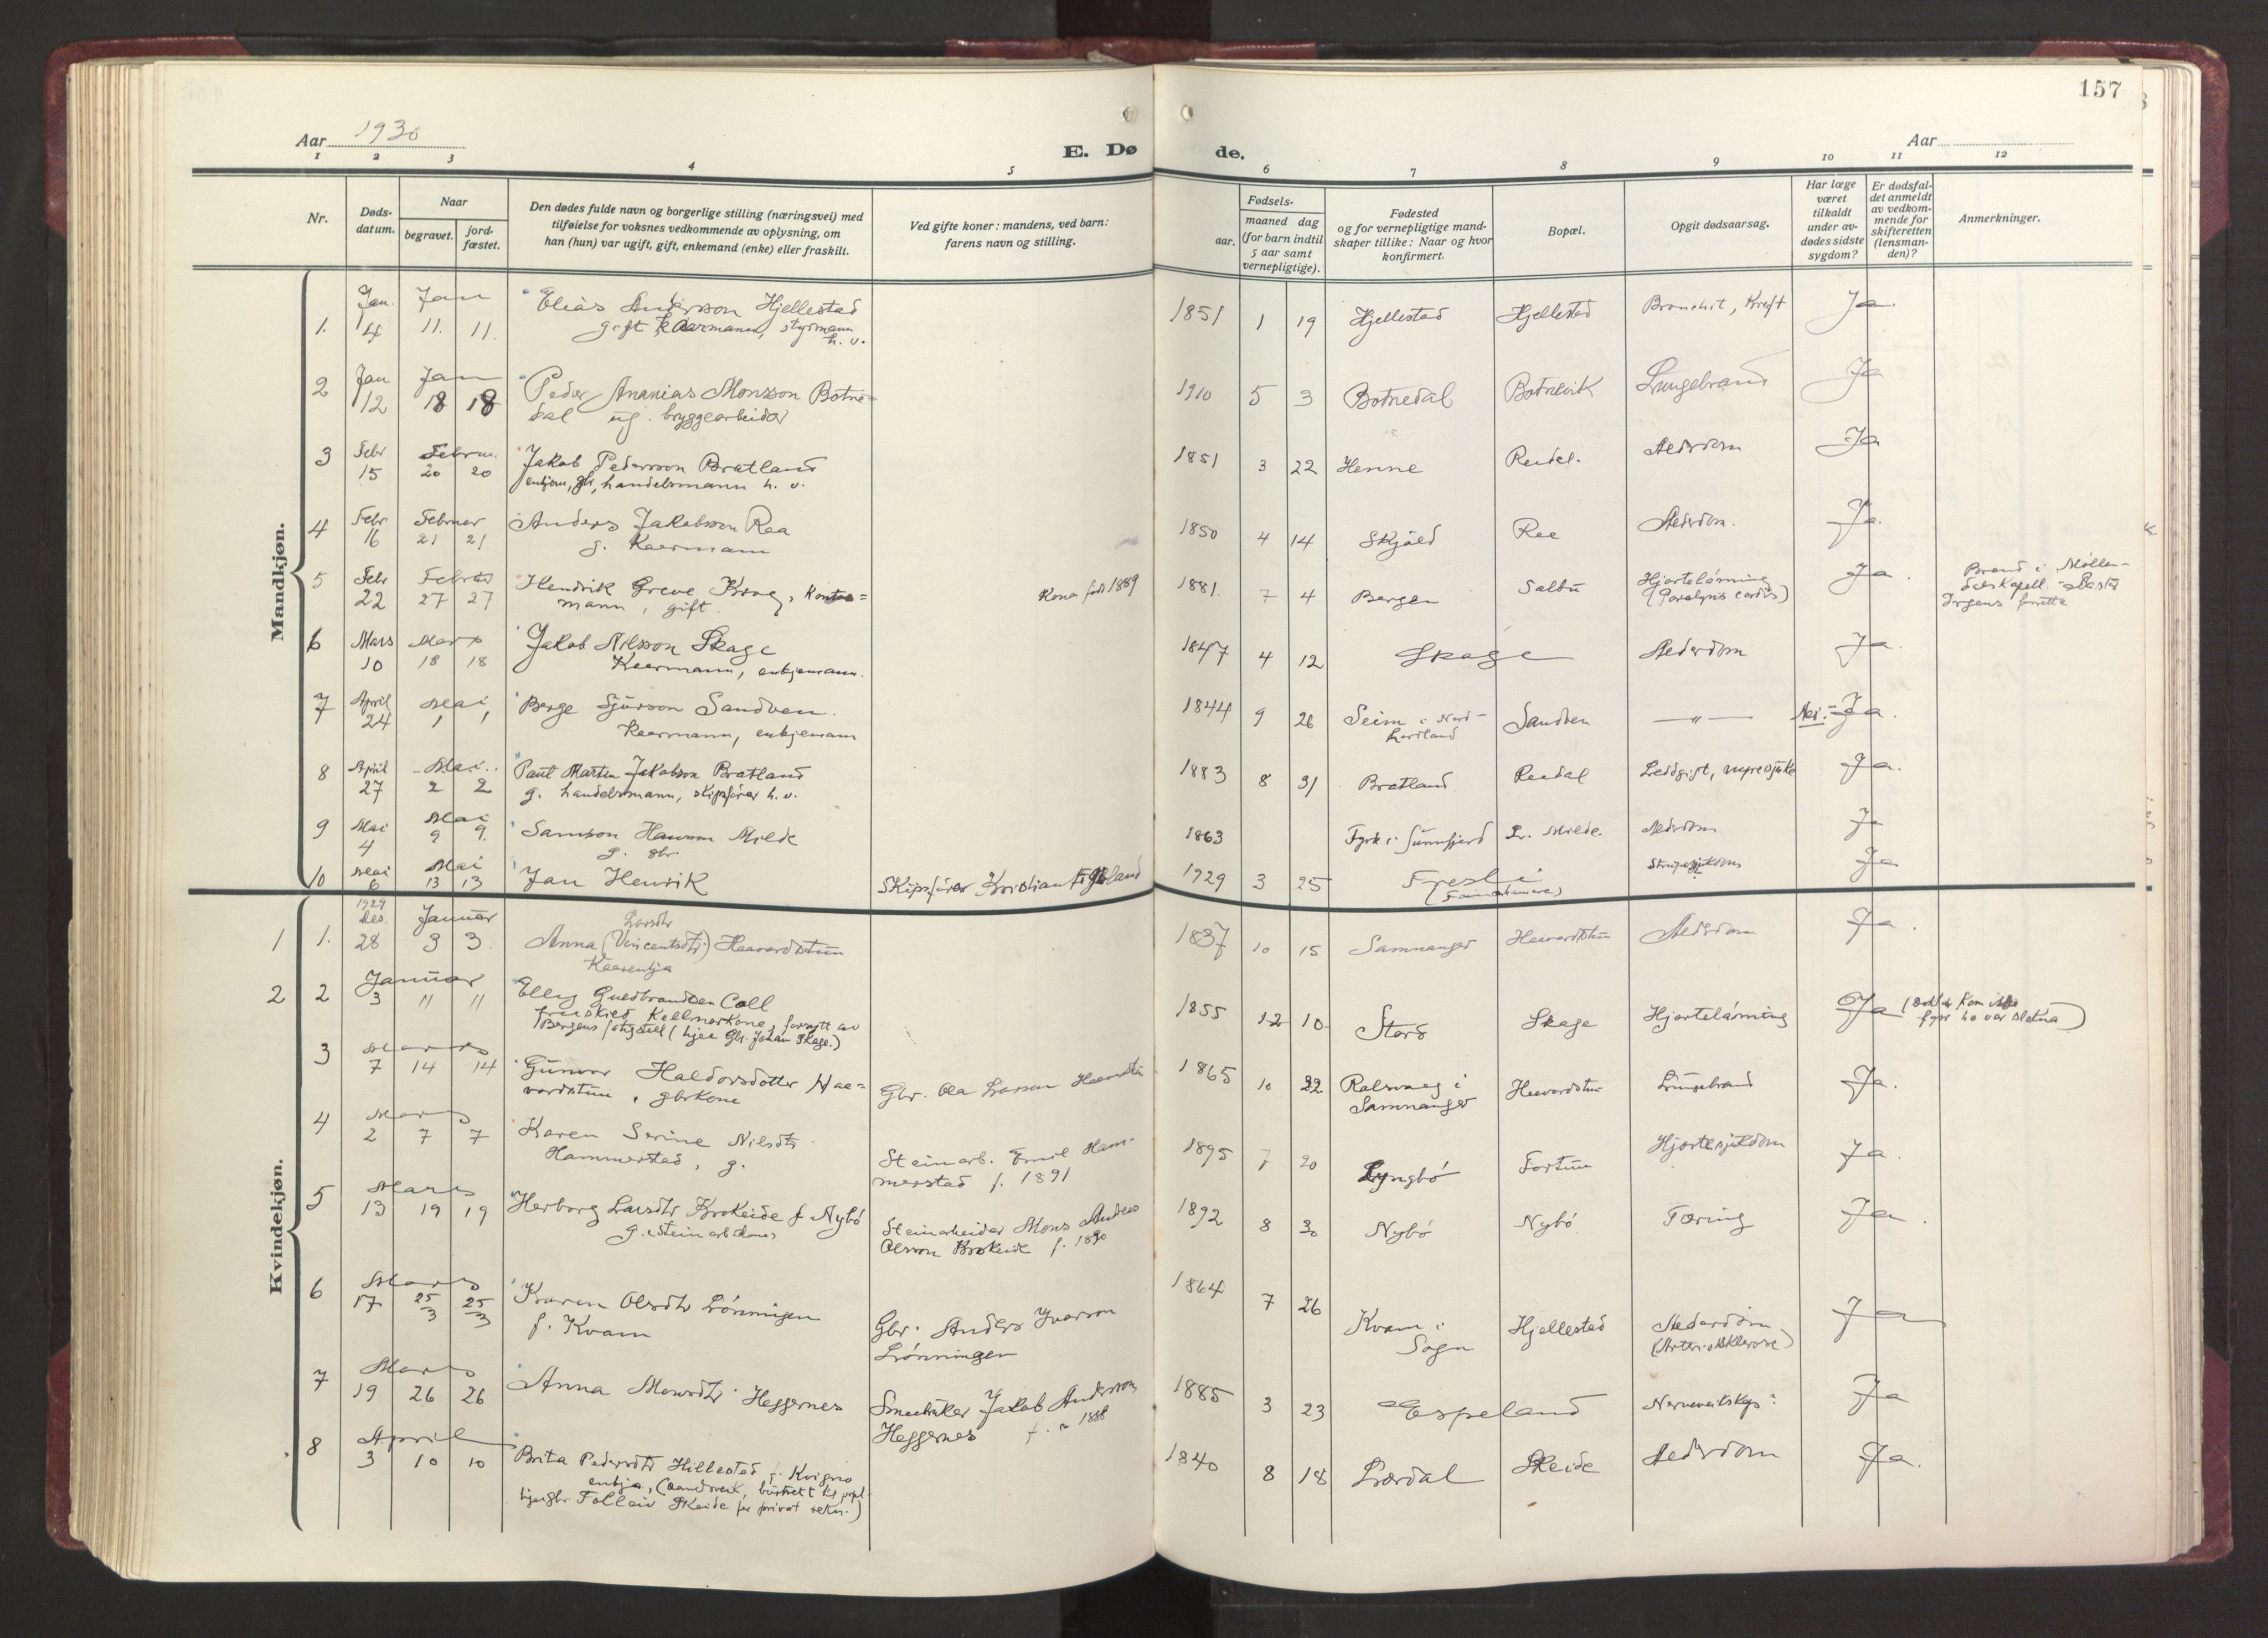 157
Aar 1930
E. Dø
de.
Aar
1 2 3 4 5 6 7 8 9 10 11 12
Nr.
Døds-
datum.
Naar
begravet.
jord-
fæstet.
Den dødes fulde navn og borgerlige stilling (næringsvei) med
tilføielse for voksnes vedkommende av oplysning, om
han (hun) var ugift, gift, enkemand (enke) eller fraskilt.
Ved gifte koner: mandens, ved barn:
farens navn og stilling.
Fødsels-
aar.
maaned dag
(for barn indtil
5 aar samt
vernepligtige).
Fødested
og for vernepligtige mand-
skaper tillike: Naar og hvor
konfirmert.
Bopæl.
Opgit dødsaarsag.
Har læge
været
tilkaldt
under av-
dødes sidste
sygdom?
Er dødsfal-
det anmeldt
av vedkom-
mende for
skifteretten
(lensman-
den)?
Anmerkninger.
Mandkjøn.
Jan. Jan Elias Hjellestad
1. 4 11. 11. gift kaarmann, styrmann
h. v.
1851 1 19 Hjellestad Hjellestad Bronchit, Kreft Ja
2 Jan Jan Peder Ananias Monsson Botne-
12 18 18 dal ug. bryggearbeider
1910 5 3 Botnedal Botnevik Lungebrand Ja
3 Febr Februar Jakob Pedersson Bratland
15 20 20 enkjem, gbr, handelsmann h. v.
1851 3 22 Henne Reidal. Alderdom Ja
4 Febr Februar Anders Jakobsson Raa
16 21 21 g. Kaarmann
1850 4 14 Skjold Alderdom. Ja.
5 Febr Februar Hendrik Greve Krag,
22 27 27 mann, gift.
Kona født 1889
1881. 7 4 Bergen Hjartelamning Ja.
(Paralysis cordis)
Brand i Møllen-
dals Kapell.
Irgens
6 Mars Mars Jakob Nilsson Skage
10 18 18 Kaarmann, enkjemann.
1847 4 12 Skage Alderdom Ja.
7 April Mai Berge Sjurson Sandven.
24 1 1 Kaarmann, enkjemann
1844 9 26 Seim i Nord- Sandven — " — Nei. Ja.
hordland
8 April Mai. Paul Martin Jakobson Bratland
27 2 2 g. handelsmann, skipsfører h. v.
1883 8 31 Bratland Reidal Leddgigt, Ja.
9 Mai Mai Samson Hansson Milde
4 9 9. g. gbr.
1863 Sunnfjord Milde. Alderdom Ja
10 Mai Mai Jan Henrik
6 13 13 Skipsfører Kristian
1929 3 25 Ja
Kvindekjøn.
1929
Des. Januar Larsdtr
1 1. 28 3 3. Anna (Vincentsdtr.) Haavardstun
Kaarenkja
1837 10 15 Samnanger Haavardstun Alderdom Ja.
2 2 Januar Elley Guldbrandsen Coll
3 11 11 fraskild Kellnarkone, forsytt av
Bergens (hjaa Gbr. Johan Skage.)
1855 12 10 Stord Skage Hjartelamning Ja (
fyrr ho var sletna)
3 Mars Gunvor Haldorsdotter Haa-
7 14 14 vardstun, gbrkone
Gbr. Ola Larsson Haavardstun
1865 10 22 i Haavardstun Lungebrand Ja.
Samnanger
4 Mars Karen Serine Nilsdtr
2 7 7 Hammerstad, g.
Steinarb. Emil Ham-
merstad f. 1891
1895 7 20 Lyngbø Fortun Hjartesjukdom Ja.
5 Mars Herborg Larsdtr Krokeide f. Nybø
13 19 19 g.
Steinarbeider Mons Andreas
Olsson Krokeide f. 1890
1892 8 30 Nybø Nybø Tæring Ja.
6 Mars Karen Olsdtr Lønningen
17 25/3 25/3 f. Kvam
Gbr. Anders Ivarson
Lønningen
1864 7 26 Kvam i Hjellestad Alderdom Ja
Sogn (Arteriosklerose)
7 Mars Anna Monsdtr. Heggernes
19 26 26
Jakob Andersson
Heggernes f. 1888
1885 3 23 Espeland Ja
8 April Brita Pedersdtr Hillestad f. Kvigno
3 10 10 enkja,
gbr. Folleiv Skeide for privat
1840 8 18 Lærdal Skeide Alderdom Ja.